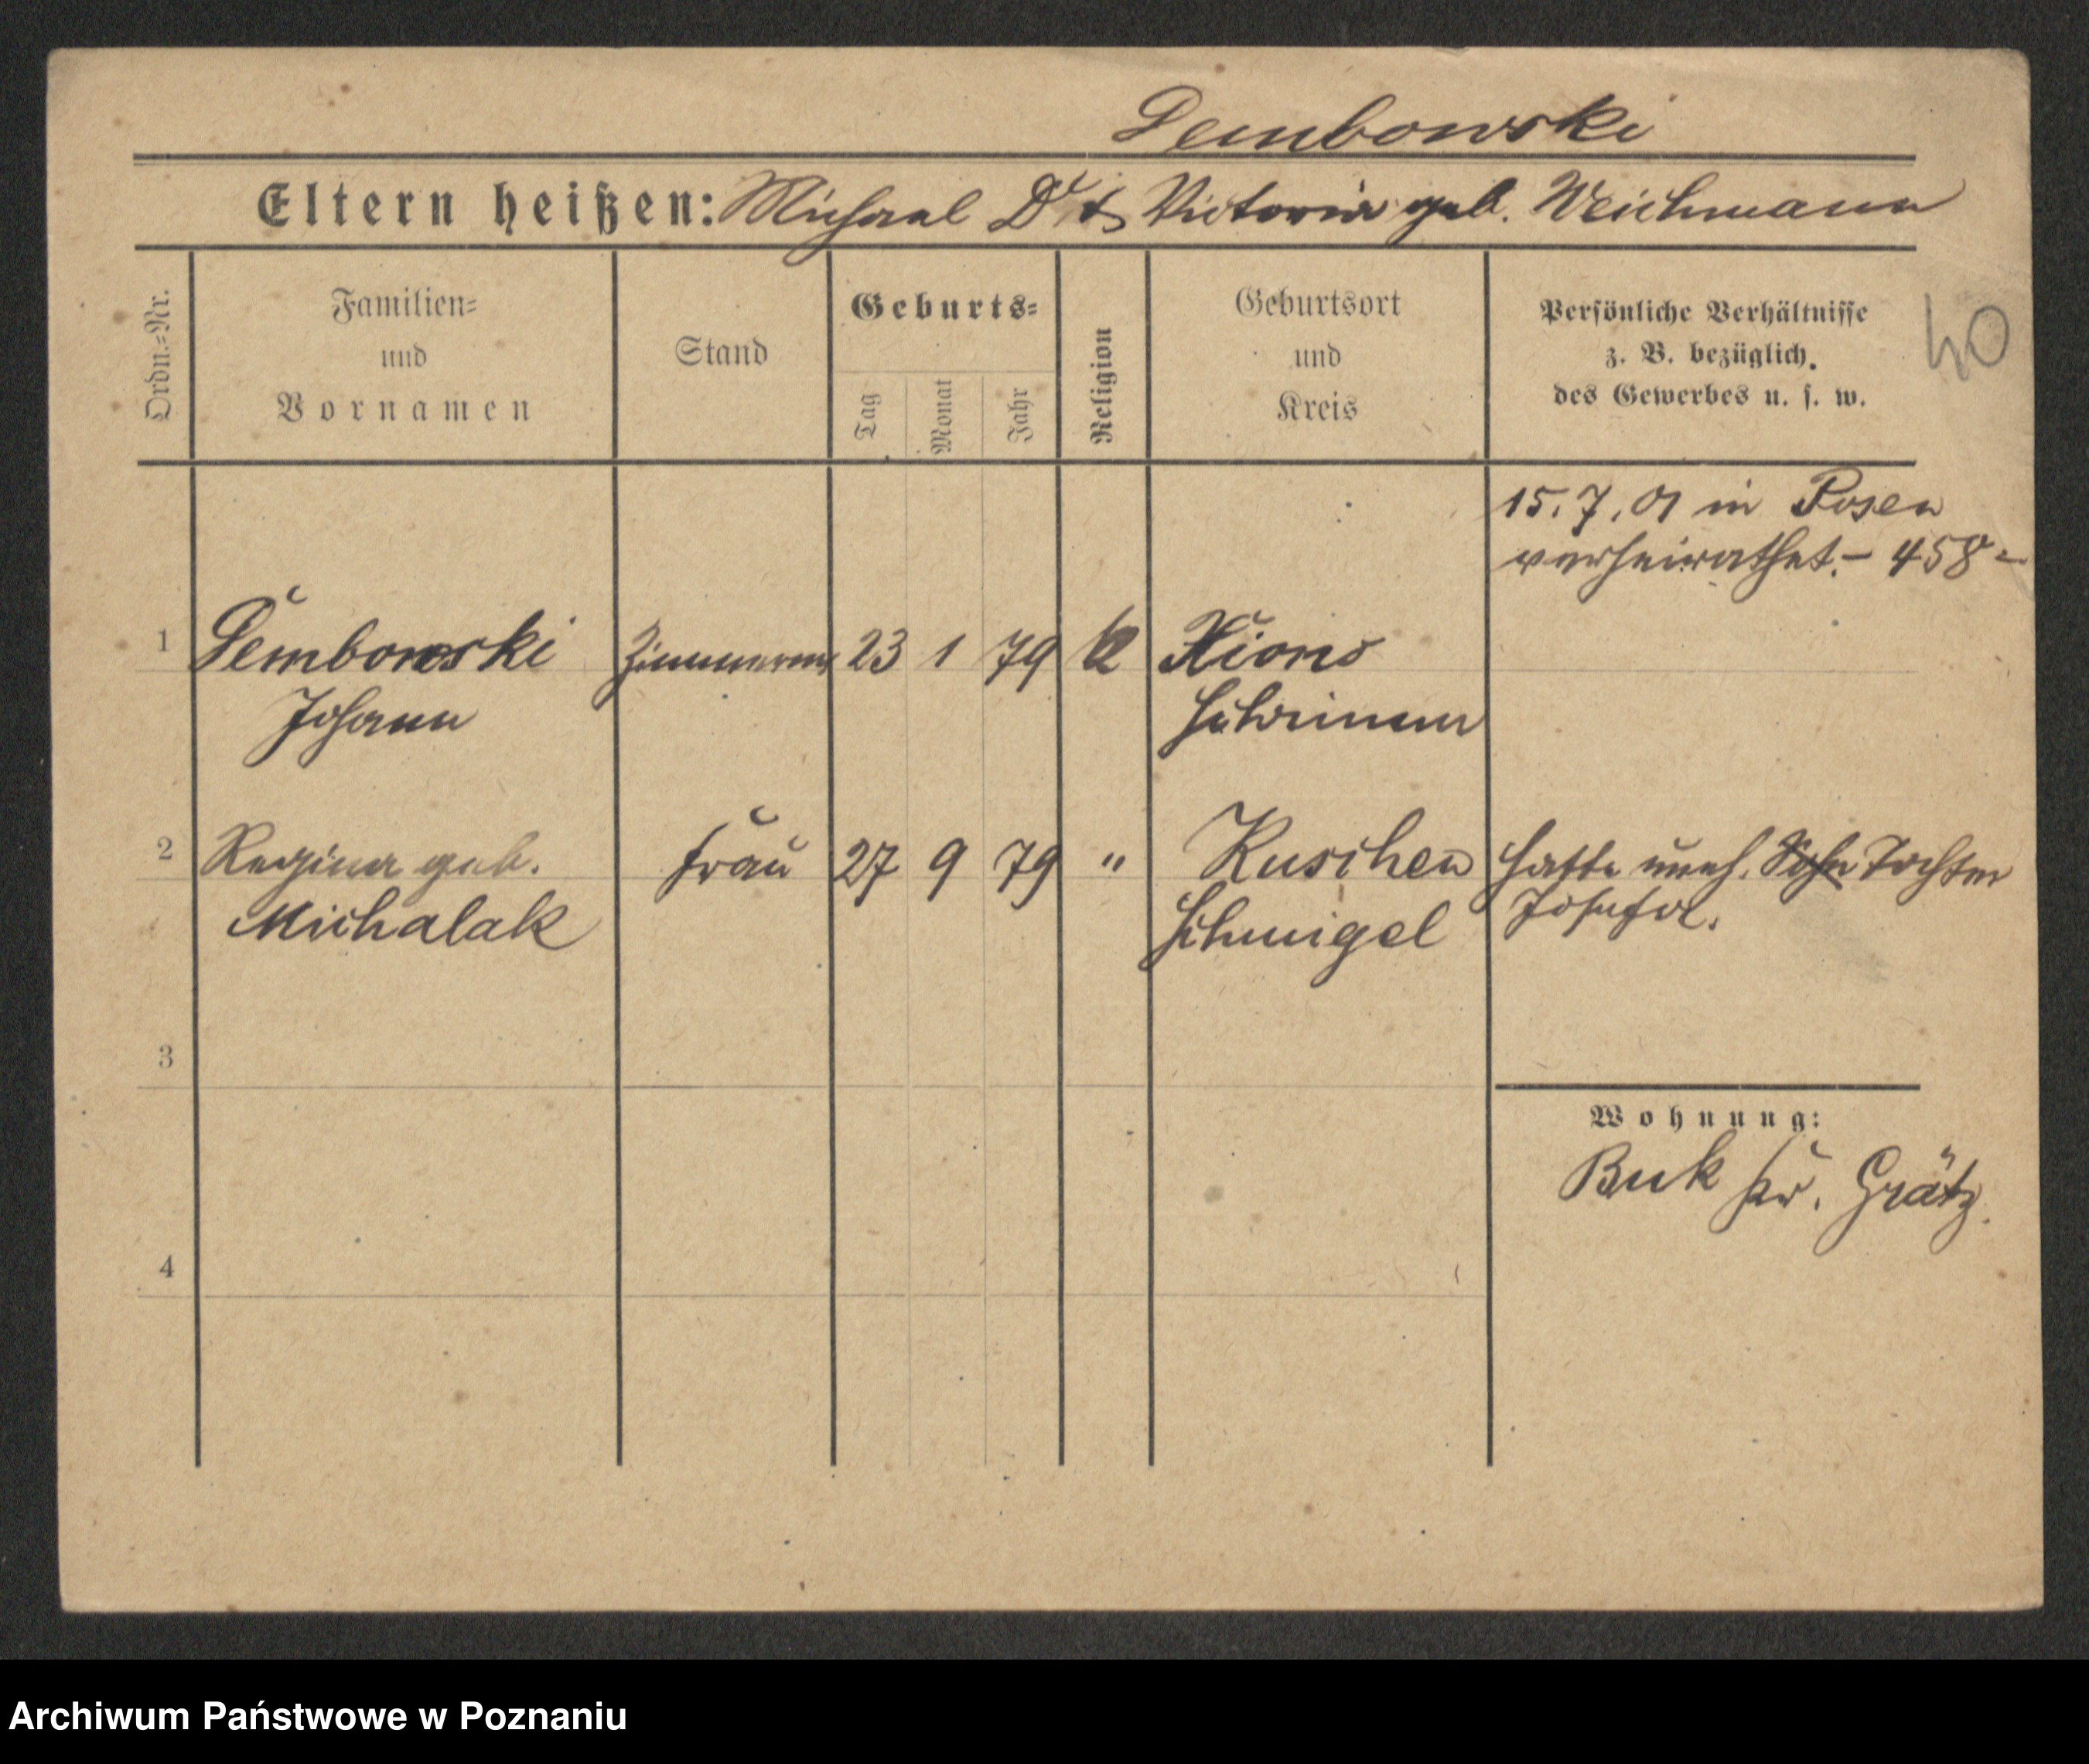 Dembowski
Eltern heißen: Michael D. & Victoria geb. Weichmann
Ordn.-Nr.
Familien-
und
Vornamen
Stand
Geburts-
Tag
Monat
Jahr
Religion
Geburtsort
und
Kreis
Persönliche Verhältnisse
z. B. bezüglich
des Gewerbes u. s. w.
40
15.7.01 in Posen
verheirathet. – 458 –
1 Dembowski Zimmerm 23 1 79 K Xions
Johann Schrimm
2 Regina geb. Frau 27 9 79 " Kuschen hatte uneh. Sohn Tochter
Michalak Schmigel Josefa.
3
Wohnung:
Buk Kr. Grätz.
4
Archiwum Państwowe w Poznaniu